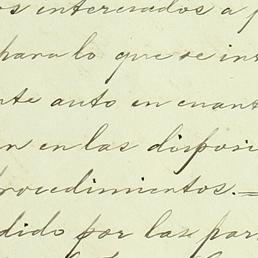 os interesados a p
para lo que se int
nte auto en cuant
n en las disposi
rocedimientos.=
dido por las par